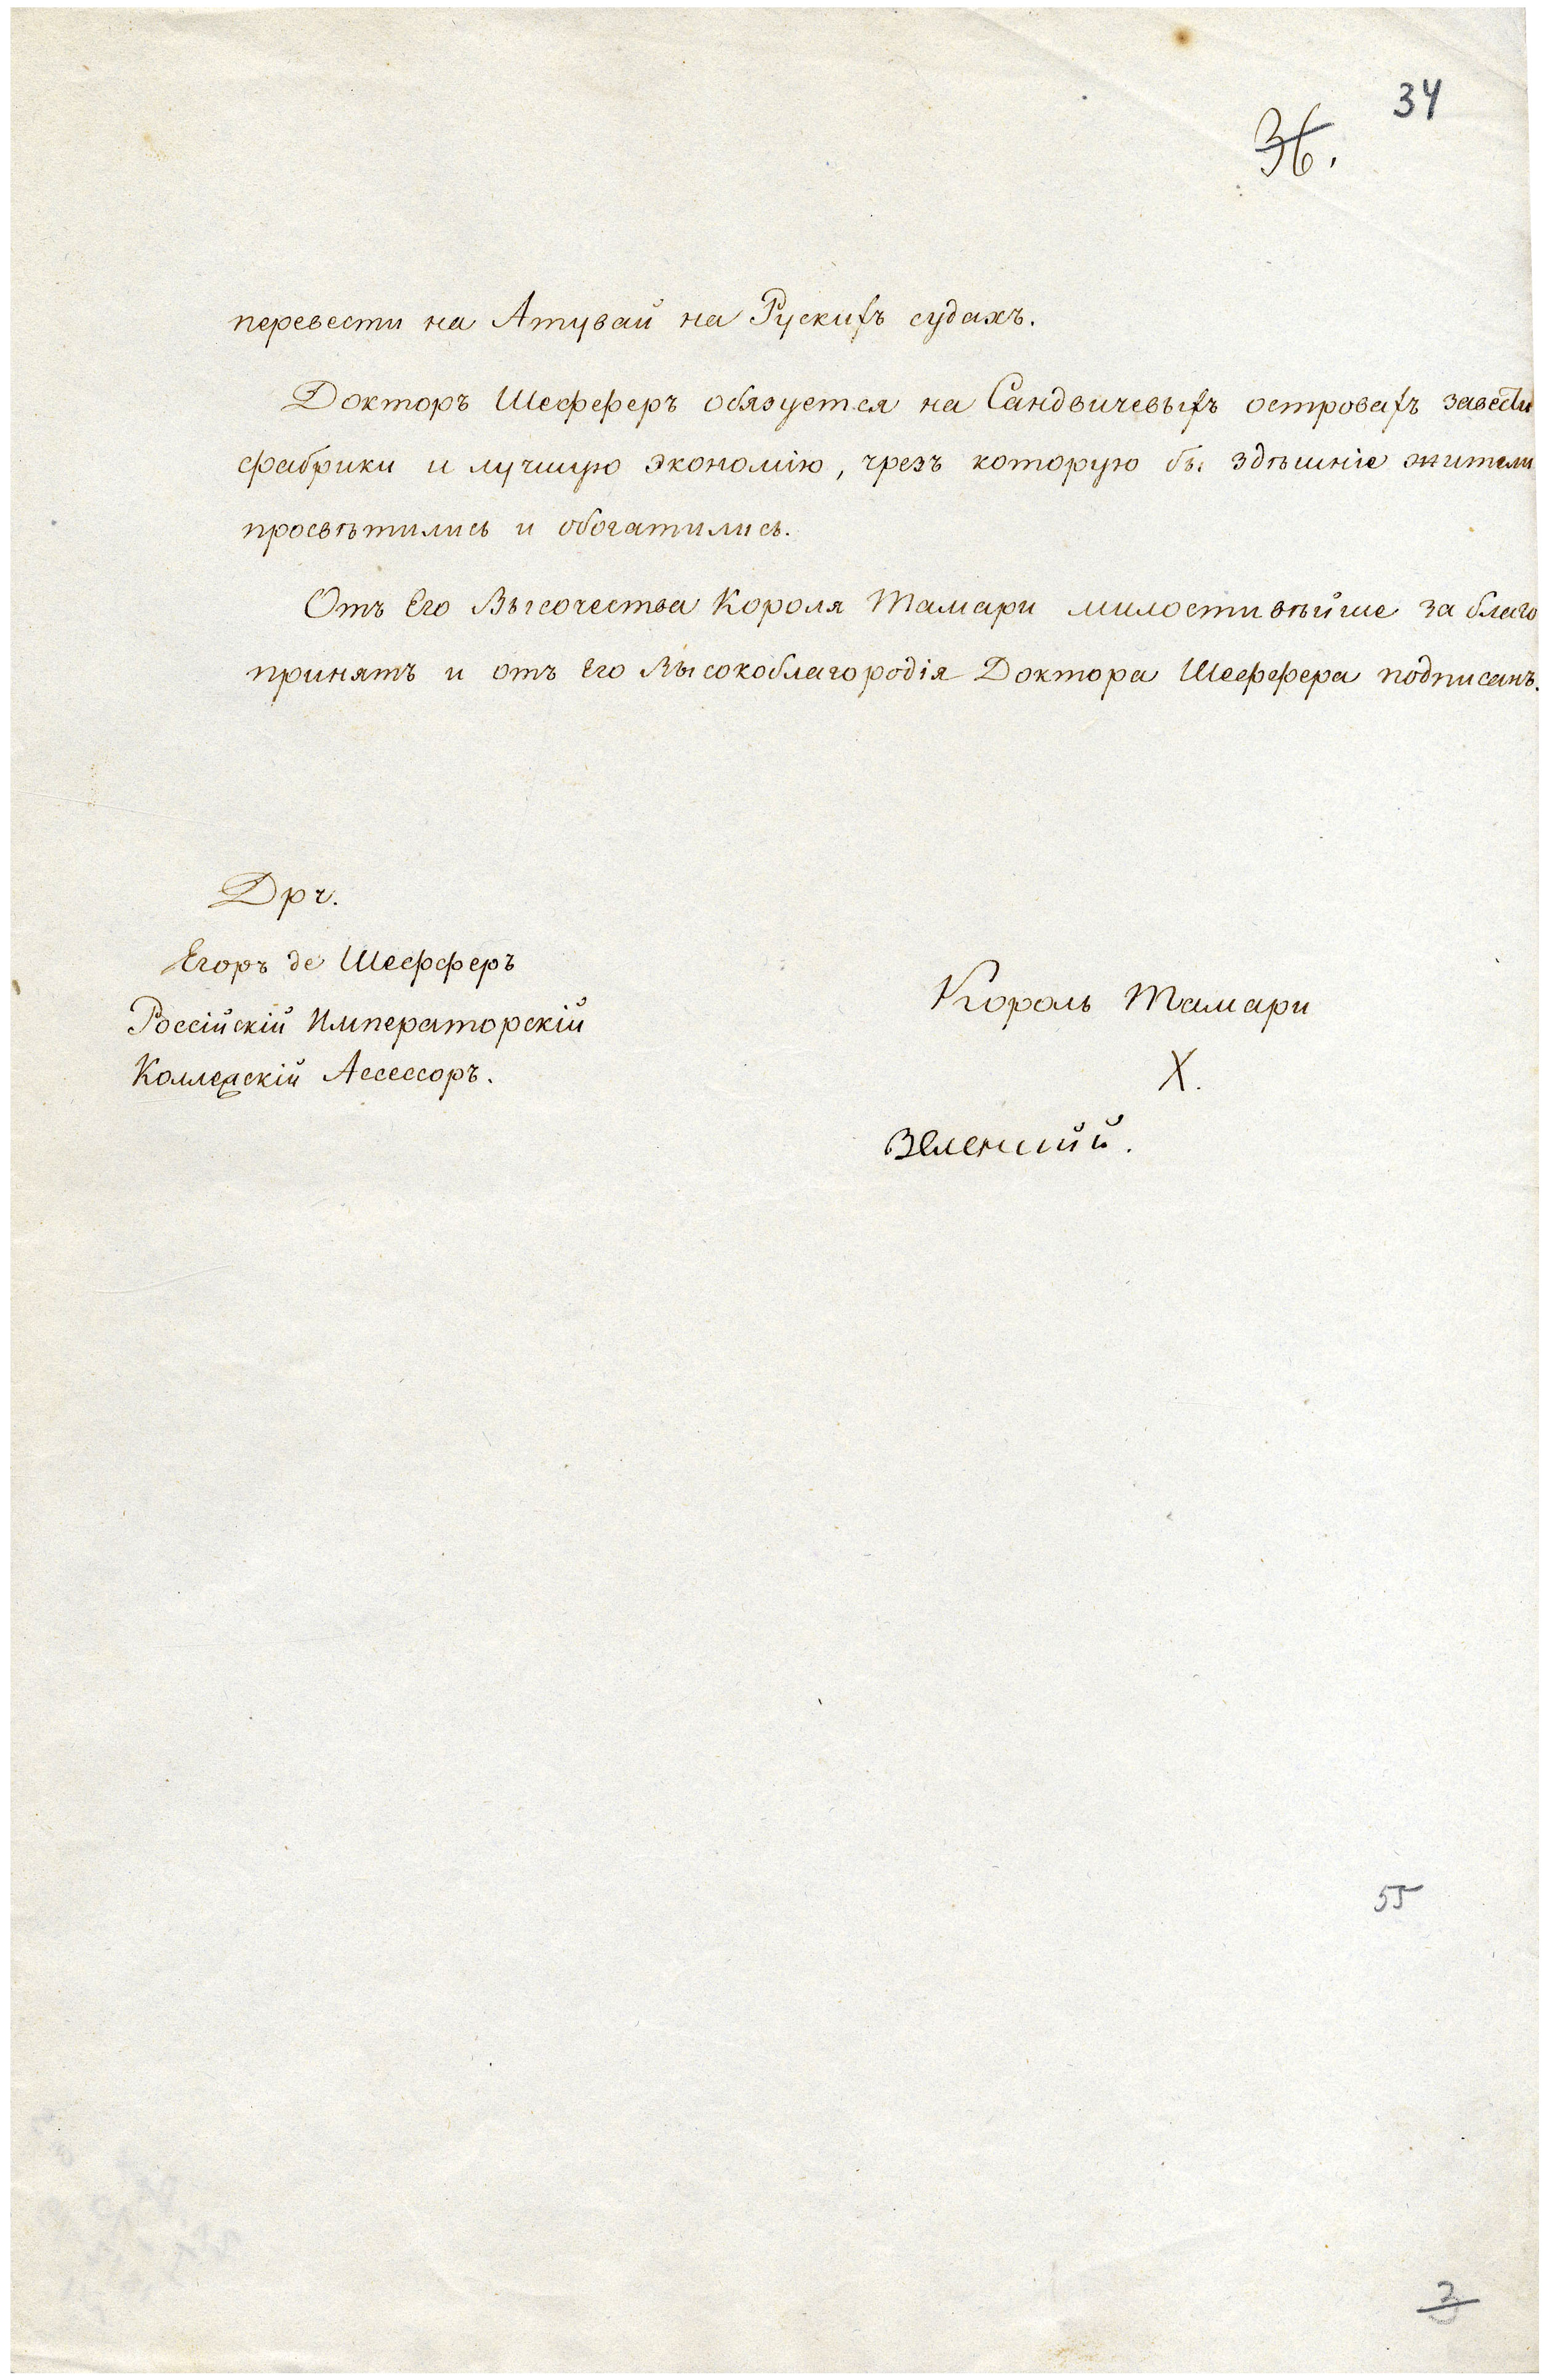 34
36.
перевести на Атувай на Рускихъ судахъ.
Докторъ Шефферъ обязуется на Сандвичевыхъ островахъ завести
фабрики и лучшую экономію, чрезъ которую бы здѣшніе жители
просвѣтились и обогатились.
Отъ Его Высочества Короля Тамари милостивѣйше за благо
принятъ и отъ Его Высокоблагородія Доктора Шеффера подписанъ.
Дръ.
Егоръ де Шефферъ
Россійскій Императорскій
Коллежскій Ассессоръ.
Король Тамари
X.
55